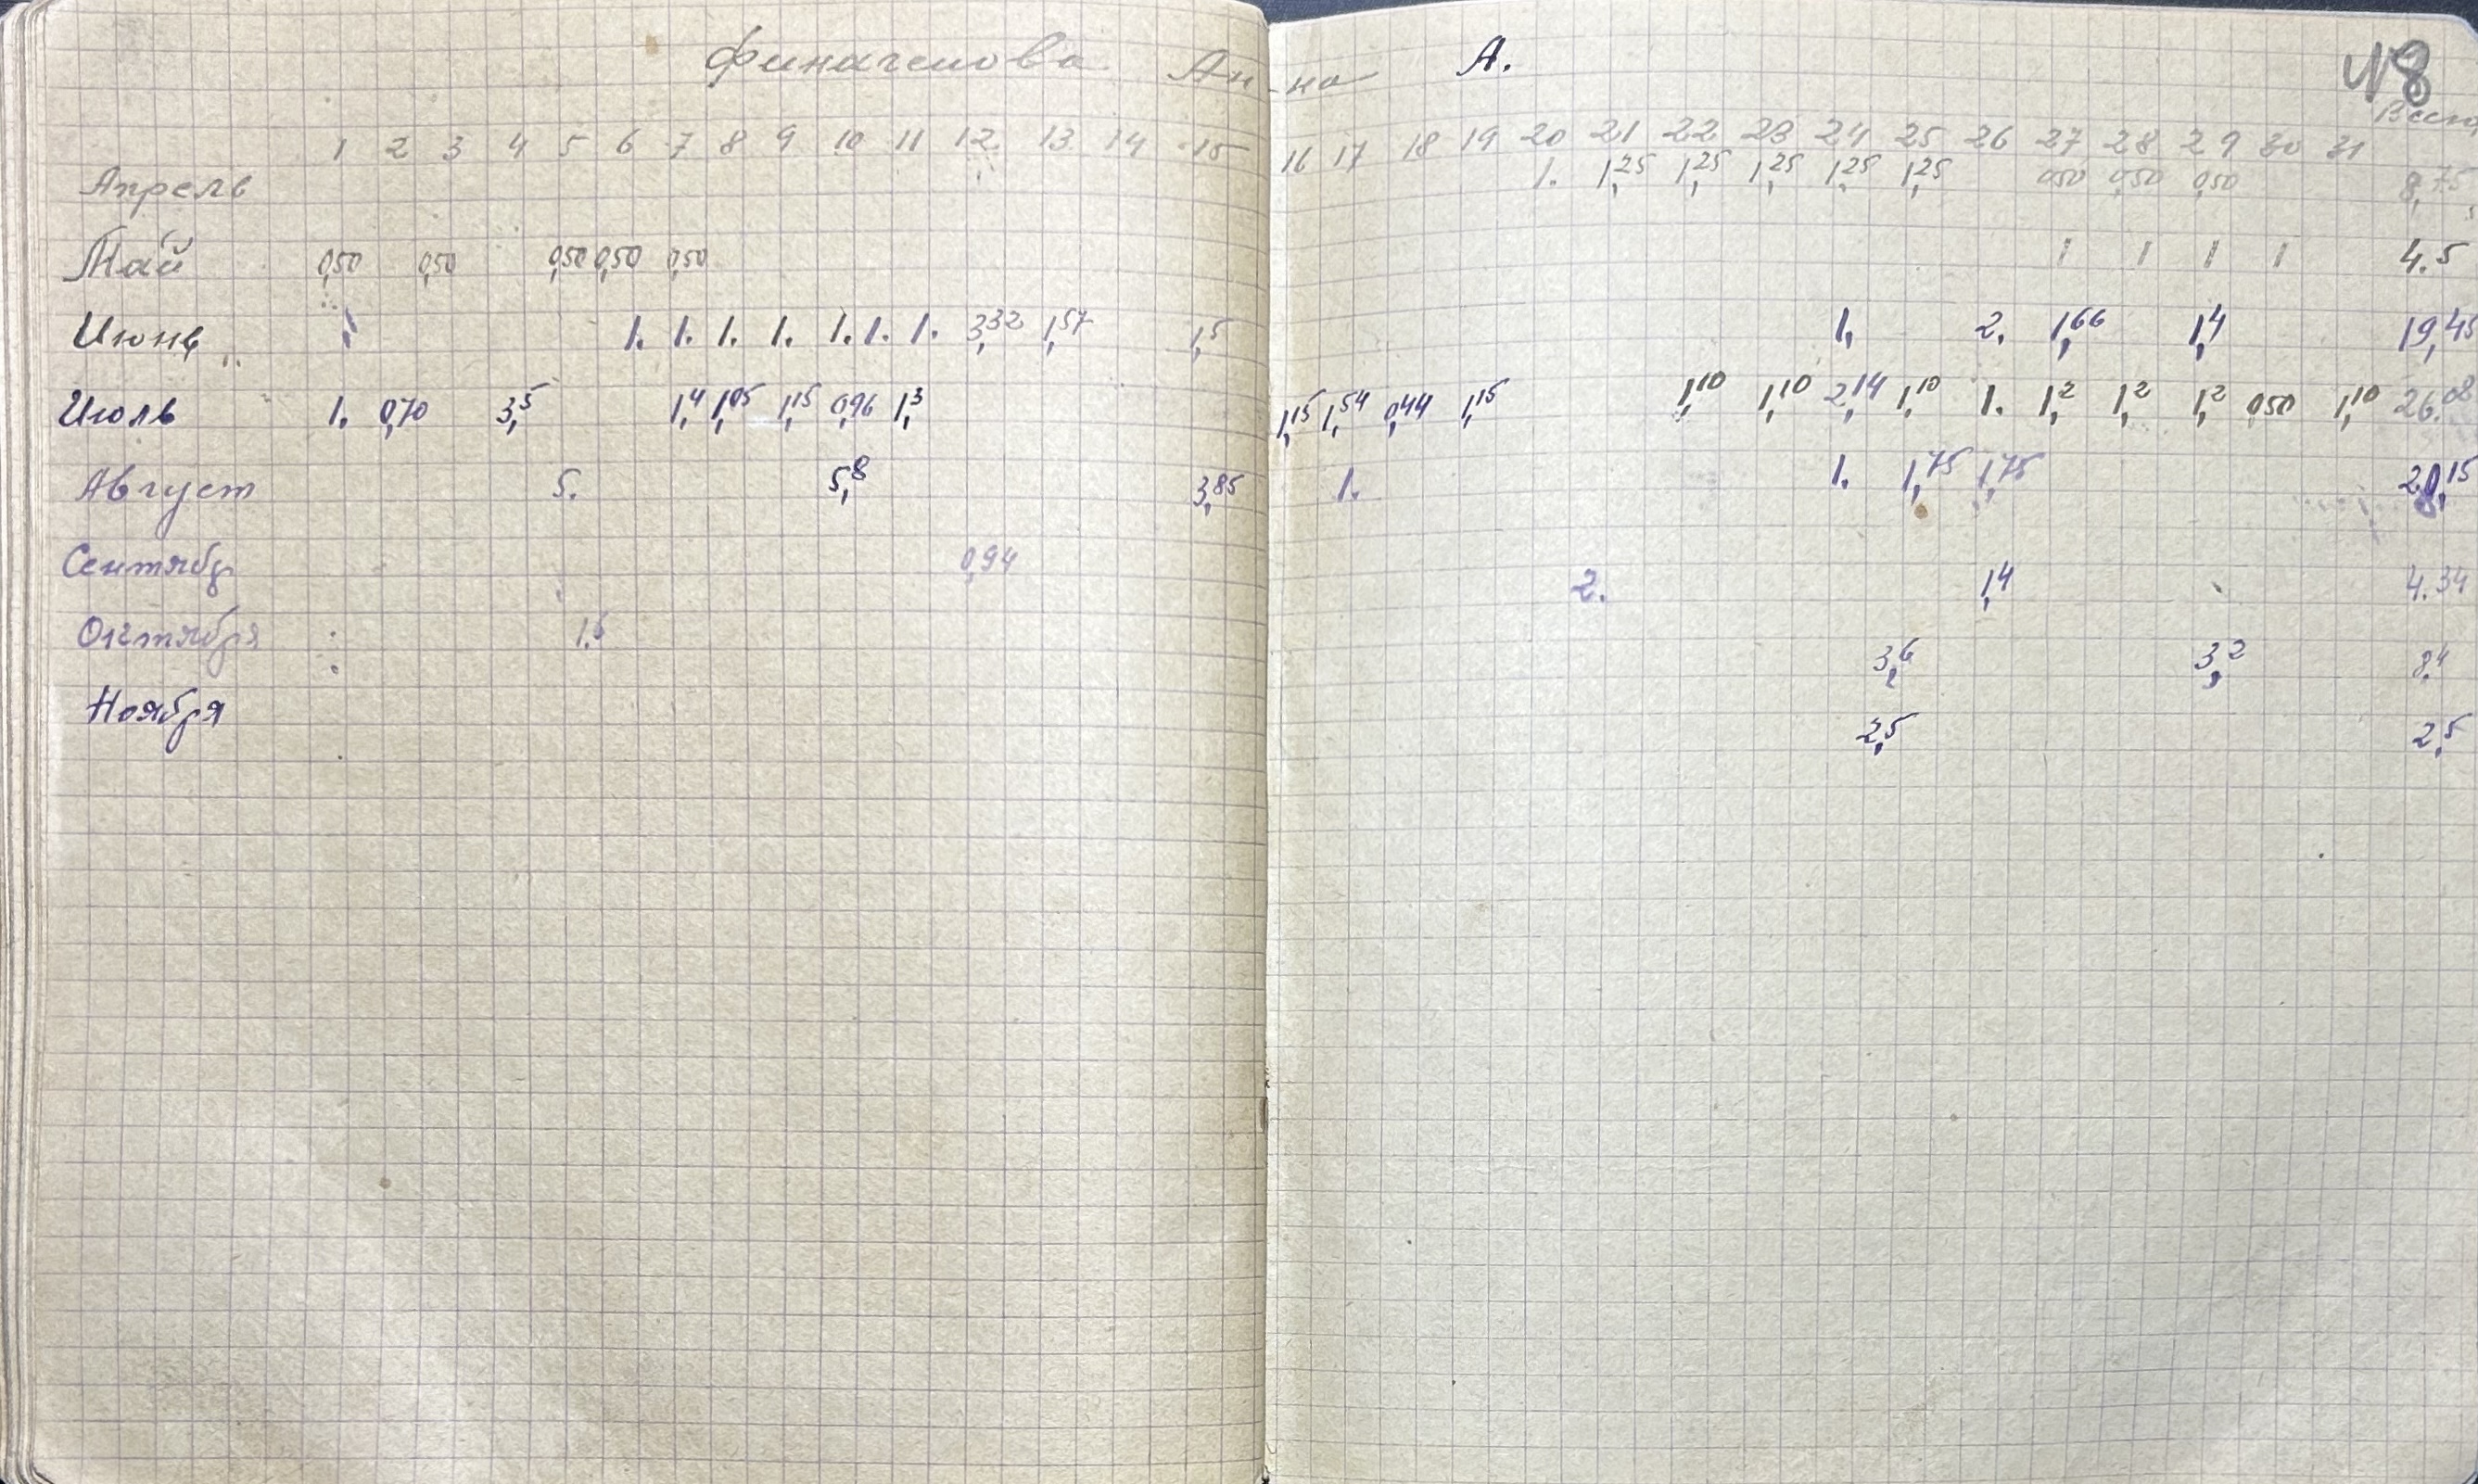 Анна А. 48
1 2 3 4 5 6 7 8 9 10 11 12 13 14 15 16 17 18 19 20 21 22 23 24 25 26 27 28 29 30 31 Всего
Апрель 1. 1,25 1,25 1,25 1,25 1,25 0,50 0,50 0,50 8,75
Май 0,50 0,50 0,50 0,50 0,50 1 1 1 1 4.5
Июнь 1. 1. 1. 1. 1. 1. 1. 3,32 1,57 1,5 1, 2. 1,66 1,4 19,45
Июль 1. 0,70 3,5 1,4 1,05 1,15 0,96 1,3 1,15 1,54 0,44 1,15 1,10 1,10 2,14 1,10 1. 1,2 1,2 1,2 0,50 1,10 26.08
Август 5. 5,8 3,85 1. 1. 1,75 1,75 20,15
Сентябр 0,94 2. 1,4 4.34
Октября 1.6 3,6 3,2 8,4
Ноября 2,5 2,5